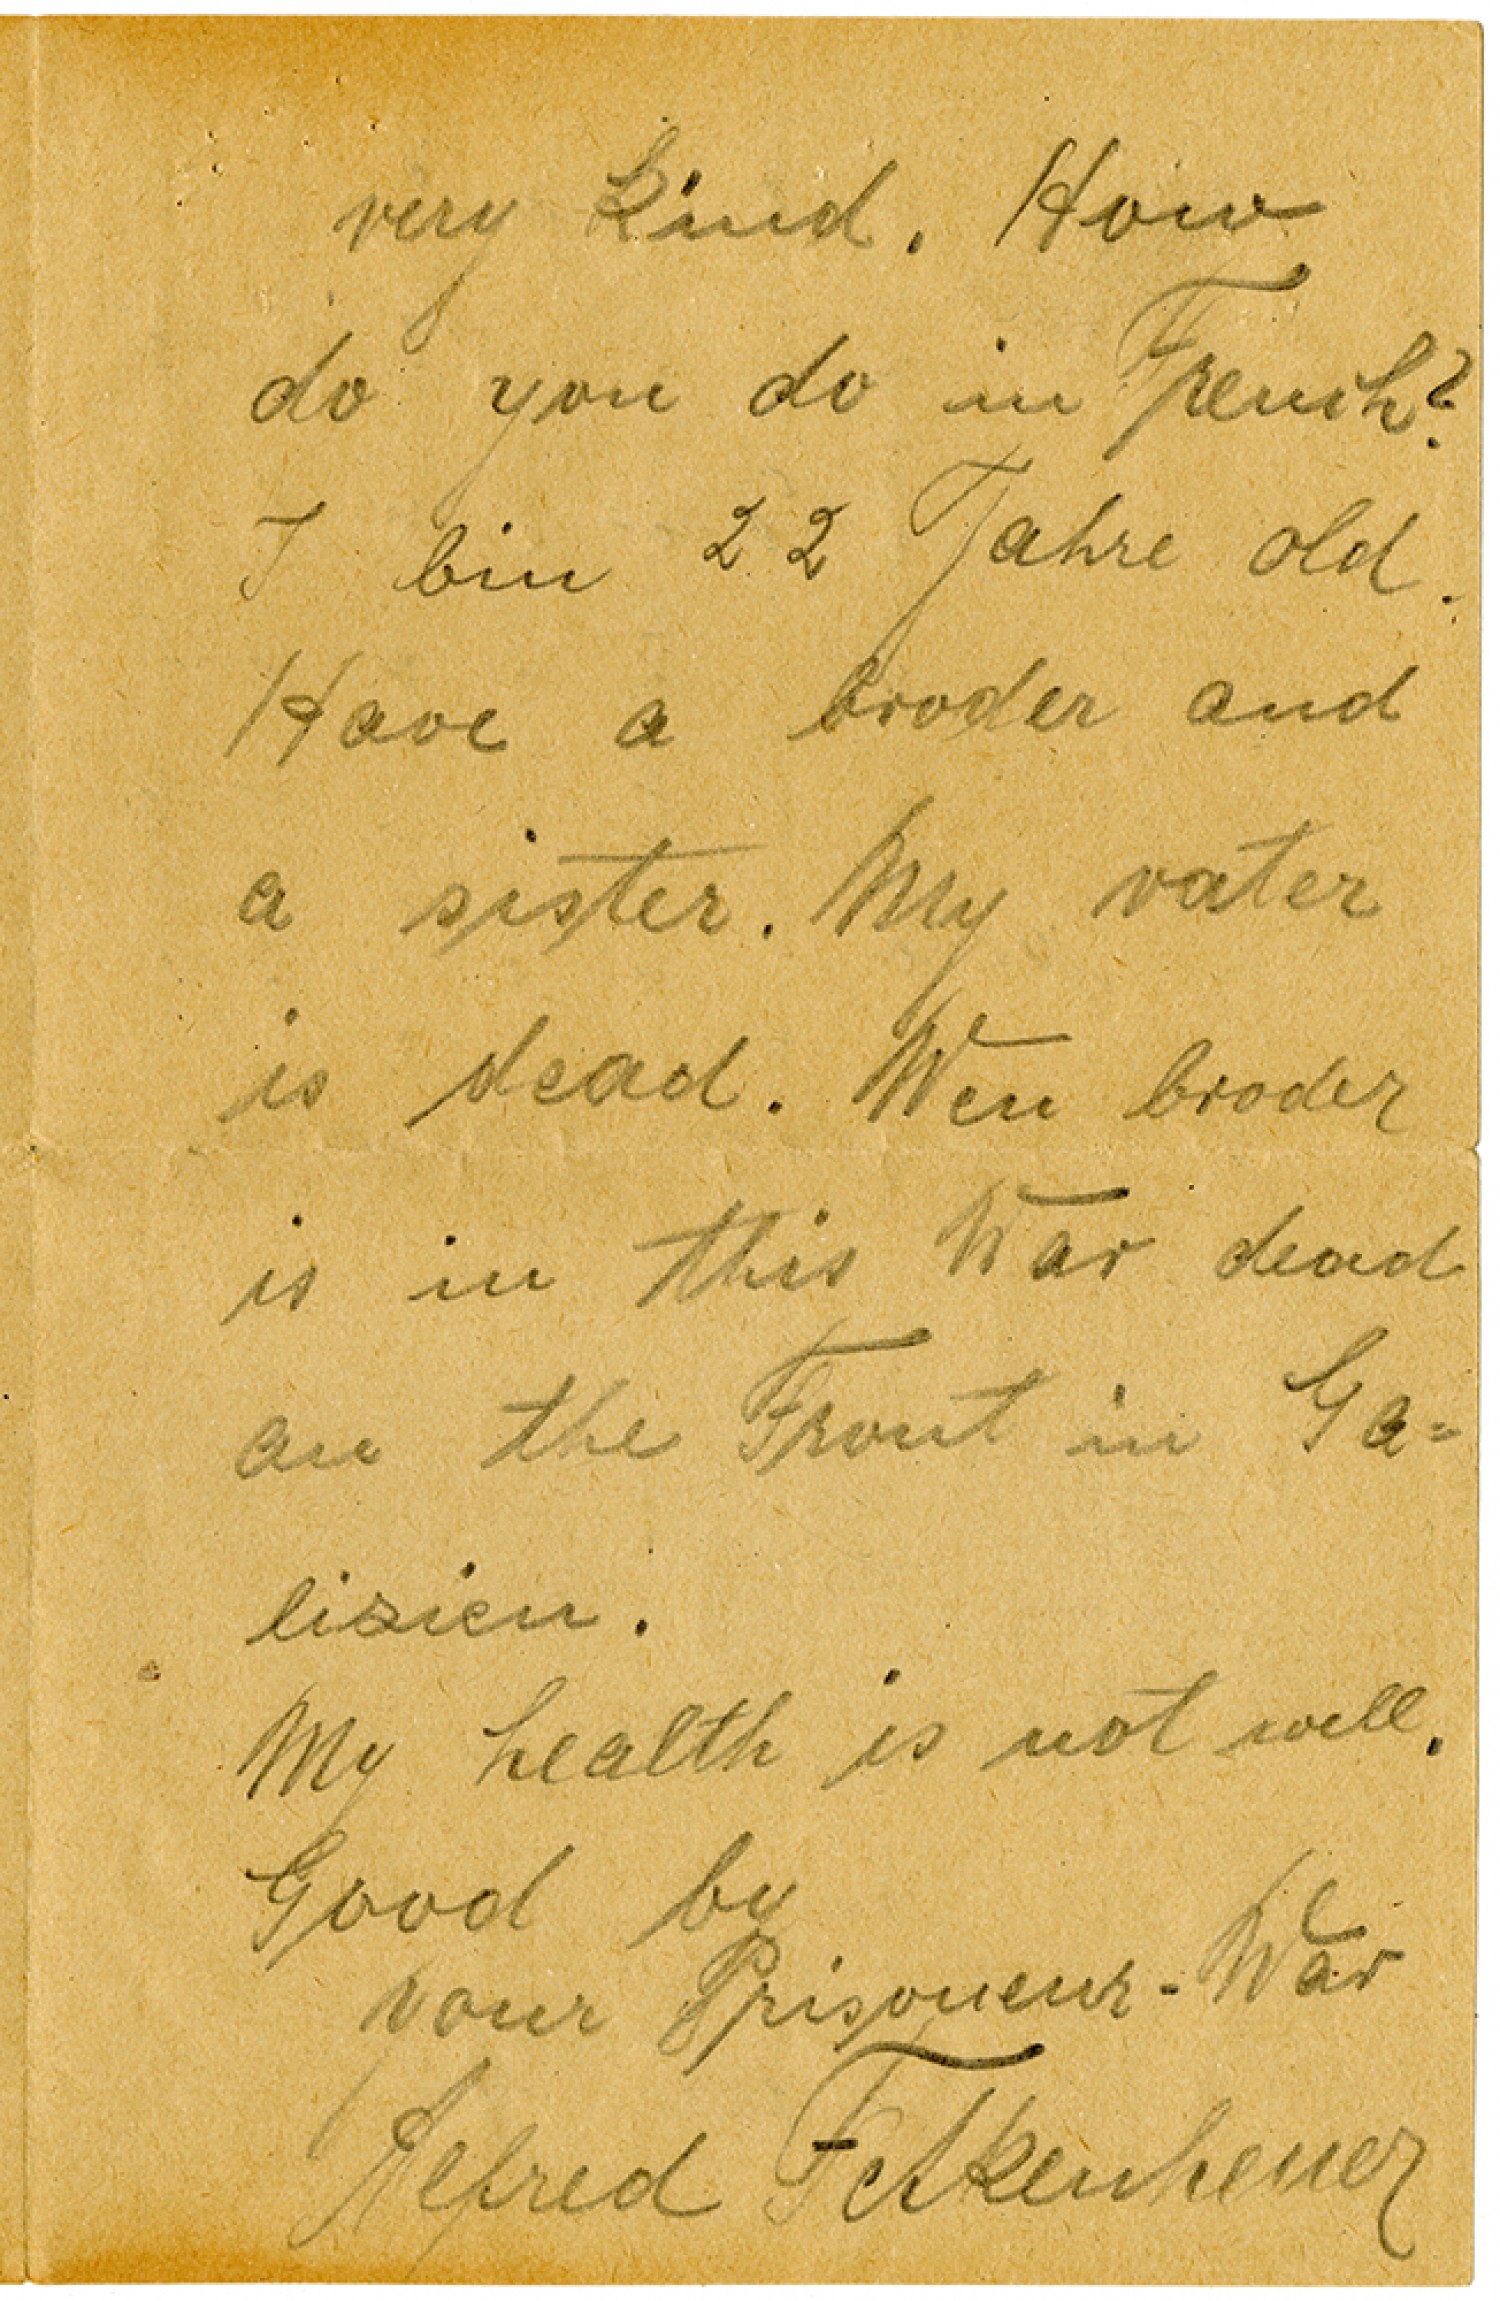 very kind. How
do you do in French?
I bin 22 Jahre old.
Have a broder and
a sister. My vater
is dead. Wen broder
is in this War dead
an the Front in Ga=
lizien.
My health is not well.
Good by
your Prisoneur-War
Alfred